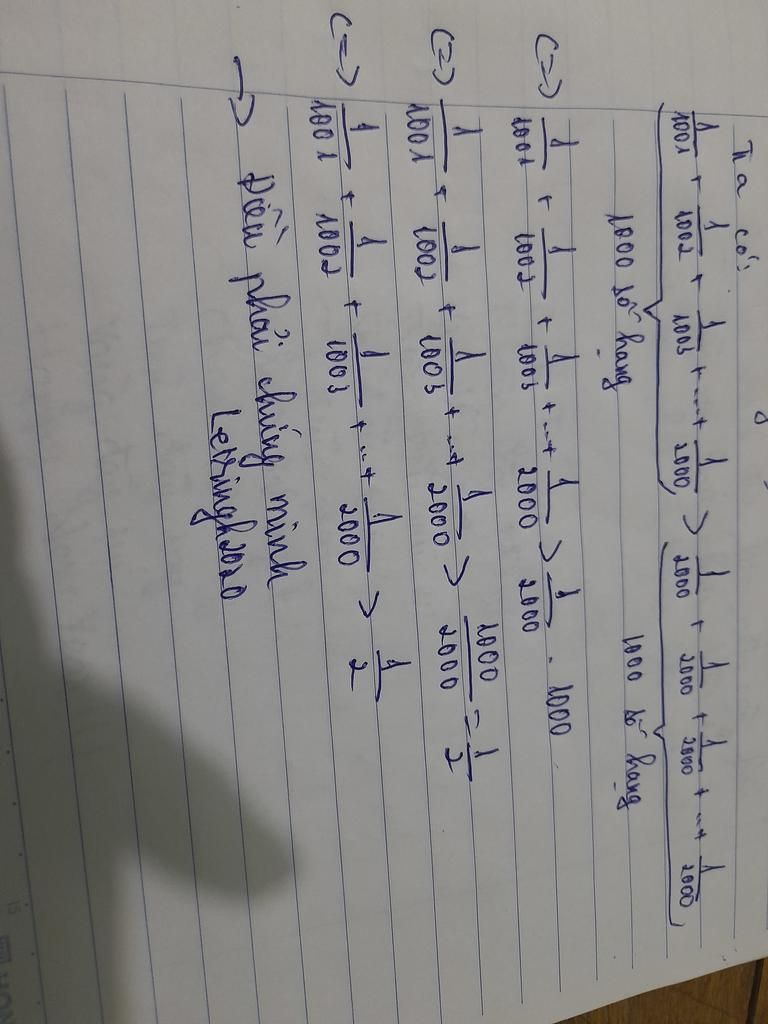 Ta có:
1/1001 + 1/1002 + 1/1003 + ... + 1/2000 > 1/2000 + 1/2000 + 1/2000 + ... + 1/2000
1000 số hạng 1000 số hạng
(=> 1/1001 + 1/1002 + 1/1003 + ... + 1/2000 > 1/2000 . 1000
(=) 1/1001 + 1/1002 + 1/1003 + ... + 1/2000 > 1000/2000 = 1/2
(=> 1/1001 + 1/1002 + 1/1003 + ... + 1/2000 > 1/2
→ Điều phải chứng minh